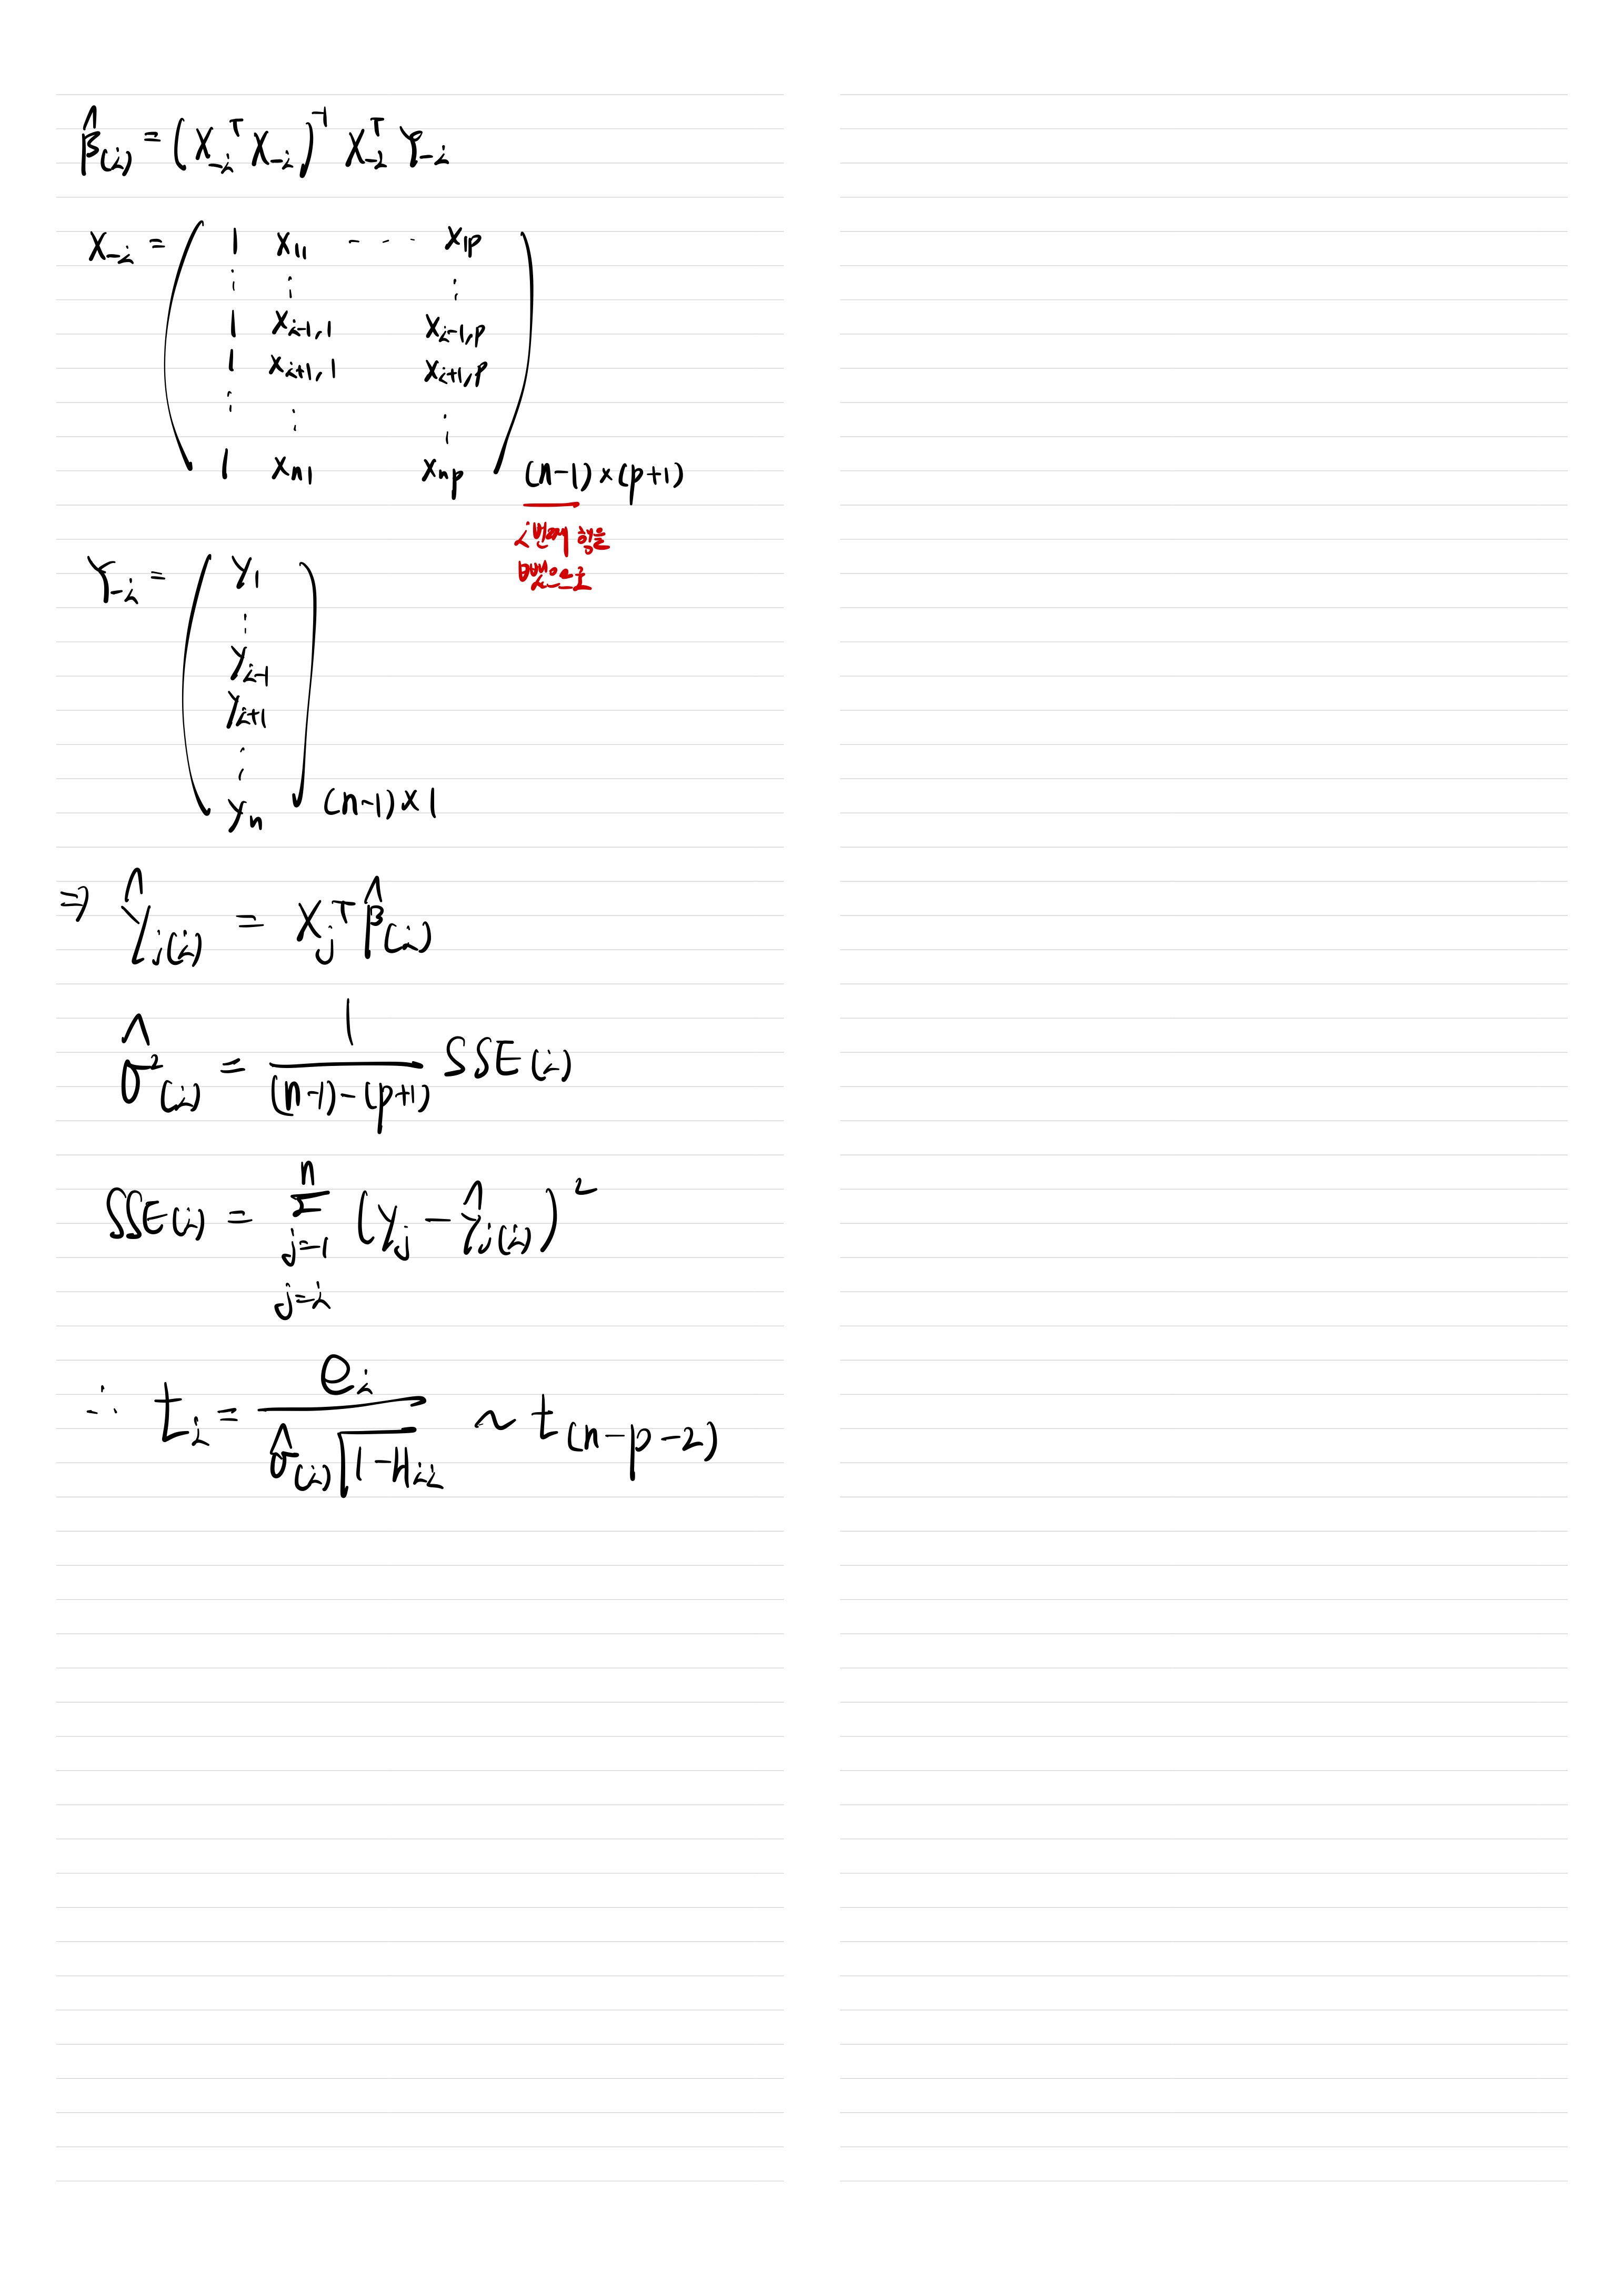 β̂(i) = (X₋ᵢᵀ X₋ᵢ)⁻¹ X₋ᵢᵀ Y₋ᵢ
X₋ᵢ = ( 1 x₁₁ - - - x₁ₚ
⋮ ⋮ ⋮
1 xᵢ₋₁,₁ xᵢ₋₁,ₚ
1 xᵢ₊₁,₁ xᵢ₊₁,ₚ
⋮ ⋮ ⋮
1 xₙ₁ xₙₚ ) (n-1)×(p+1)
i번째 행을
뺐으므로
Y₋ᵢ = ( y₁
⋮
yᵢ₋₁
yᵢ₊₁
⋮
yₙ ) (n-1)×1
⇒ ŷⱼ(i) = Xⱼᵀ β̂(i)
σ̂²(i) = 1 / ((n-1)-(p+1)) SSE(i)
SSE(i) = Σ (yⱼ - ŷⱼ(i))²
n
j=1
j=i
∴ tᵢ = eᵢ / (σ̂(i) √(1-Hᵢᵢ)) ~ t(n-p-2)